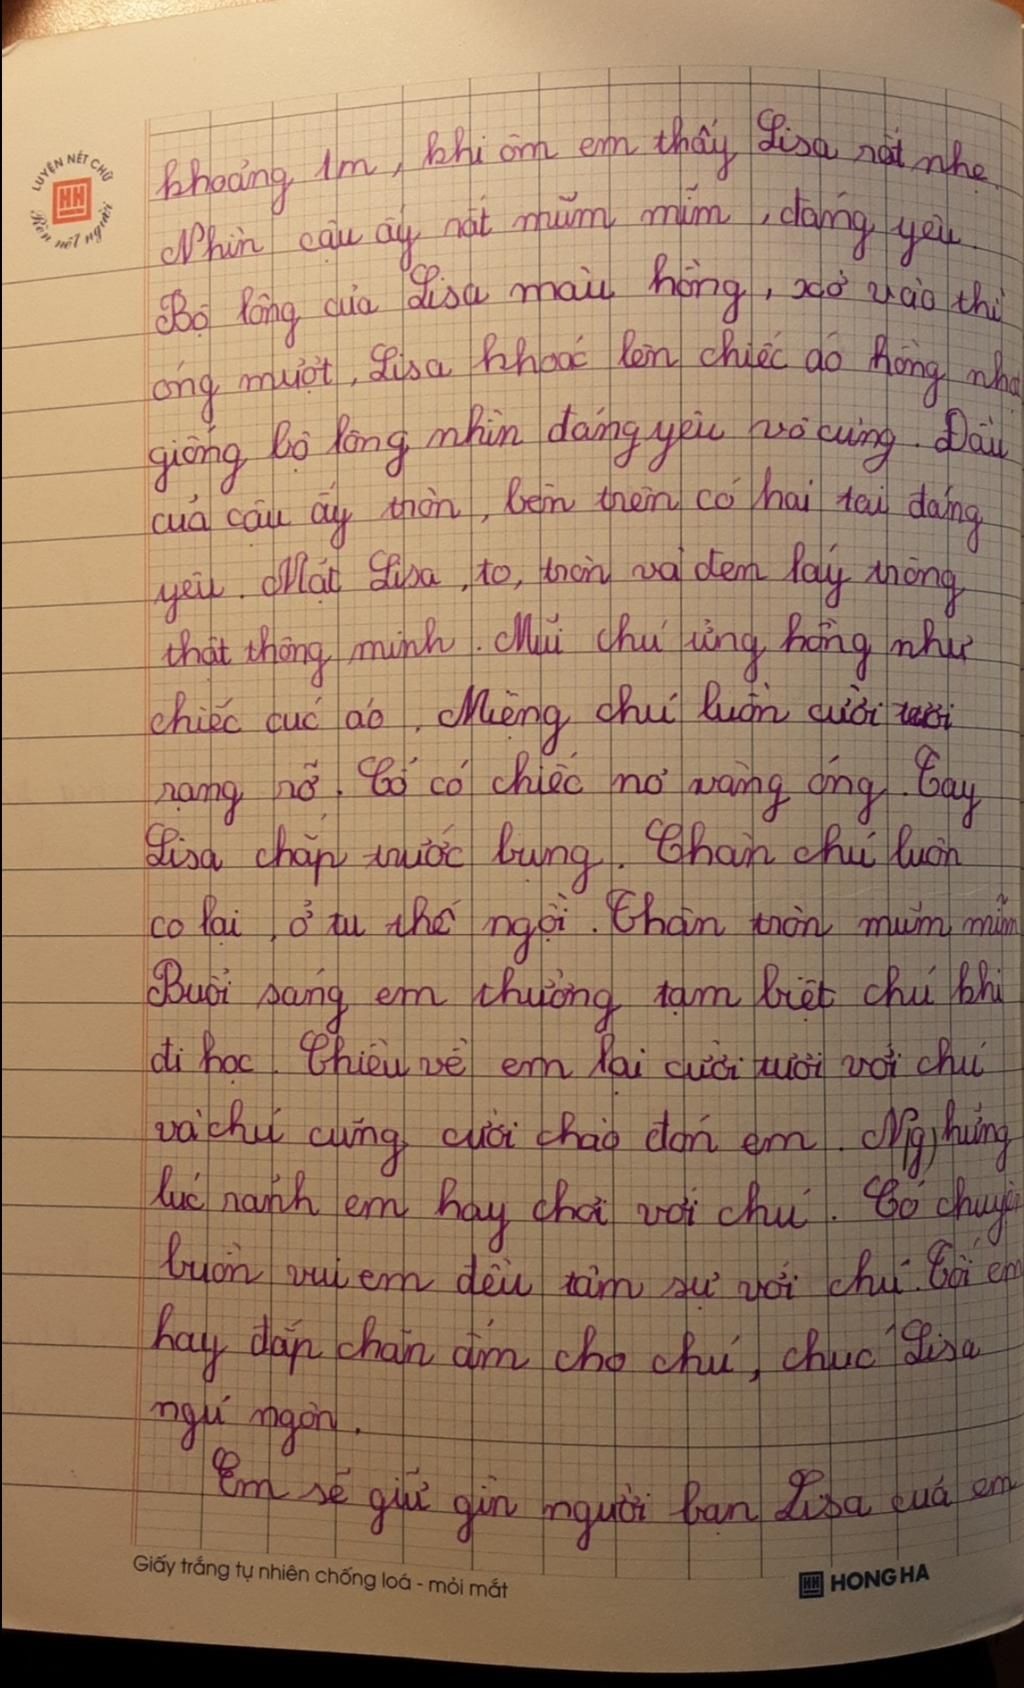 LUYỆN NẾT CHỮ
Rèn nết người
khoảng 1m, khi ôm em thấy Lisa rất nhẹ.
Nhìn cậu ấy rất mũm mĩm, đáng yêu.
Bộ lông của Lisa màu hồng, xờ vào thì
óng mượt, Lisa khoác lên chiếc áo hồng
giống bộ lông nhìn đáng yêu vô cùng. Đầu
của cậu ấy tròn, bên trên có hai tai đáng
yêu. Mắt Lisa, to, tròn và đen láy trông
thật thông minh. Mũi chú ửng hồng như
chiếc cúc áo. Miệng chú luôn cười
rạng rỡ. Cổ có chiếc nơ vàng óng. Tay
Lisa chắp trước bụng. Chân chú luôn
co lại, ở tư thế ngồi. Thân tròn mũm mĩm
Buổi sáng em thường tạm biệt chú khi
đi học. Chiều về em lại cười tươi với chú
và chú cũng cười chào đón em. Những
lúc rảnh em hay chơi với chú. Có
buồn vui em đều tâm sự với chú. Tối em
hay đắp chăn ấm cho chú, chúc Lisa
ngủ ngon.
Em sẽ giữ gìn người bạn Lisa của em
Giấy trắng tự nhiên chống loá - mỏi mắt
HONG HA